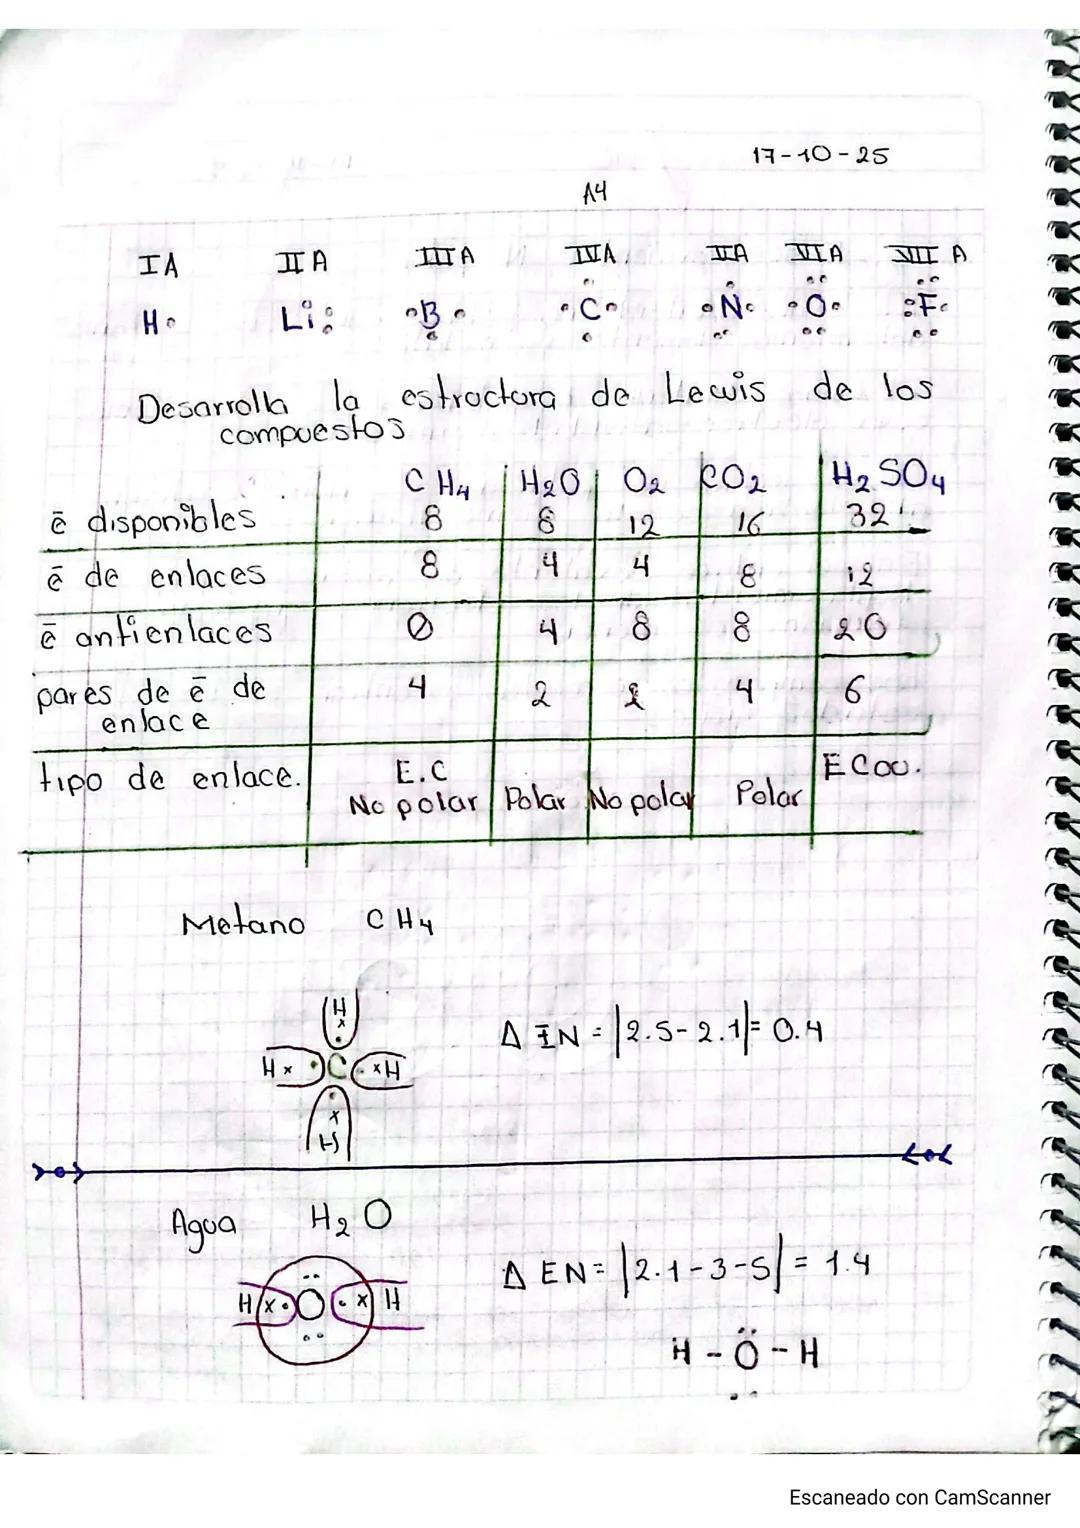 17-10-25
A4
IA IIA IIIA IVA IIA VIA VII A
H Li B C N O F
Desarrolla la estructura de Lewis de los
compuestos
CH4 H2O O2 CO2 H2SO4
ē disponibles 8 8 12 16 32
ē de enlaces 8 4 4 8 12
ē antienlaces 0 4 8 8 20
pares de ē de 4 2 2 4 6
enlace
tipo de enlace. E.C E Coo.
No polar Polar No polar Polar
Metano CH4
H x
Δ EN = |2.5-2.1| = 0.4
H x C x H
x
H
Agua H2O
Δ EN = |2.1-3-5| = 1.4
H x O x H
H - Ö - H
Escaneado con CamScanner